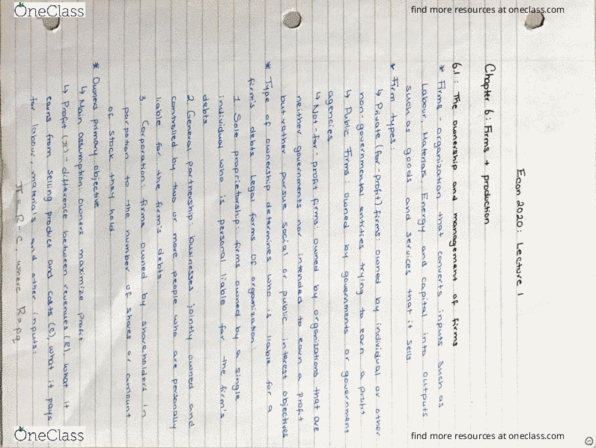 OneClass
find more resources at oneclass.com
Econ 2020: Lecture 1
Chapter 6: Firms + production
6.1: The ownership and management of firms
* Firms: organization that converts inputs such as
Labour, Materials, Energy and capital into outputs
such as goods and services that it sells
* Firm types:
↳ Private (for profit) firms owned by individual or other
non-governmental entities trying to earn a profit
↳ Public: Firms owned by governments or government
agencies
↳ Not-for-profit: firms owned by organizations that are
neither governments nor intended to earn a profit
but rather pursue social or public interest objectives
* Type of ownership determines who is liable for a
firm's debts. Legal forms of organization:
1. Sole proprietorship: firms owned by a single
individual who is personal liable for the firm's
debts
2. General partnership: businesses jointly owned and
controlled by two or more people who are personally
liable for the firm's debts
3. Corporation: firms owned by shareholders in
porpotion to the number of shares or amount
of stock they hold
* Owned primary objective
↳ Main assumption: owners maximize profit
↳ Profit (π) = difference between revenues (R), what it
earns from selling product and costs (C), what it pays
for labour, materials and other inputs:
π = R - C, where R = pq
OneClass
find more resources at oneclass.com